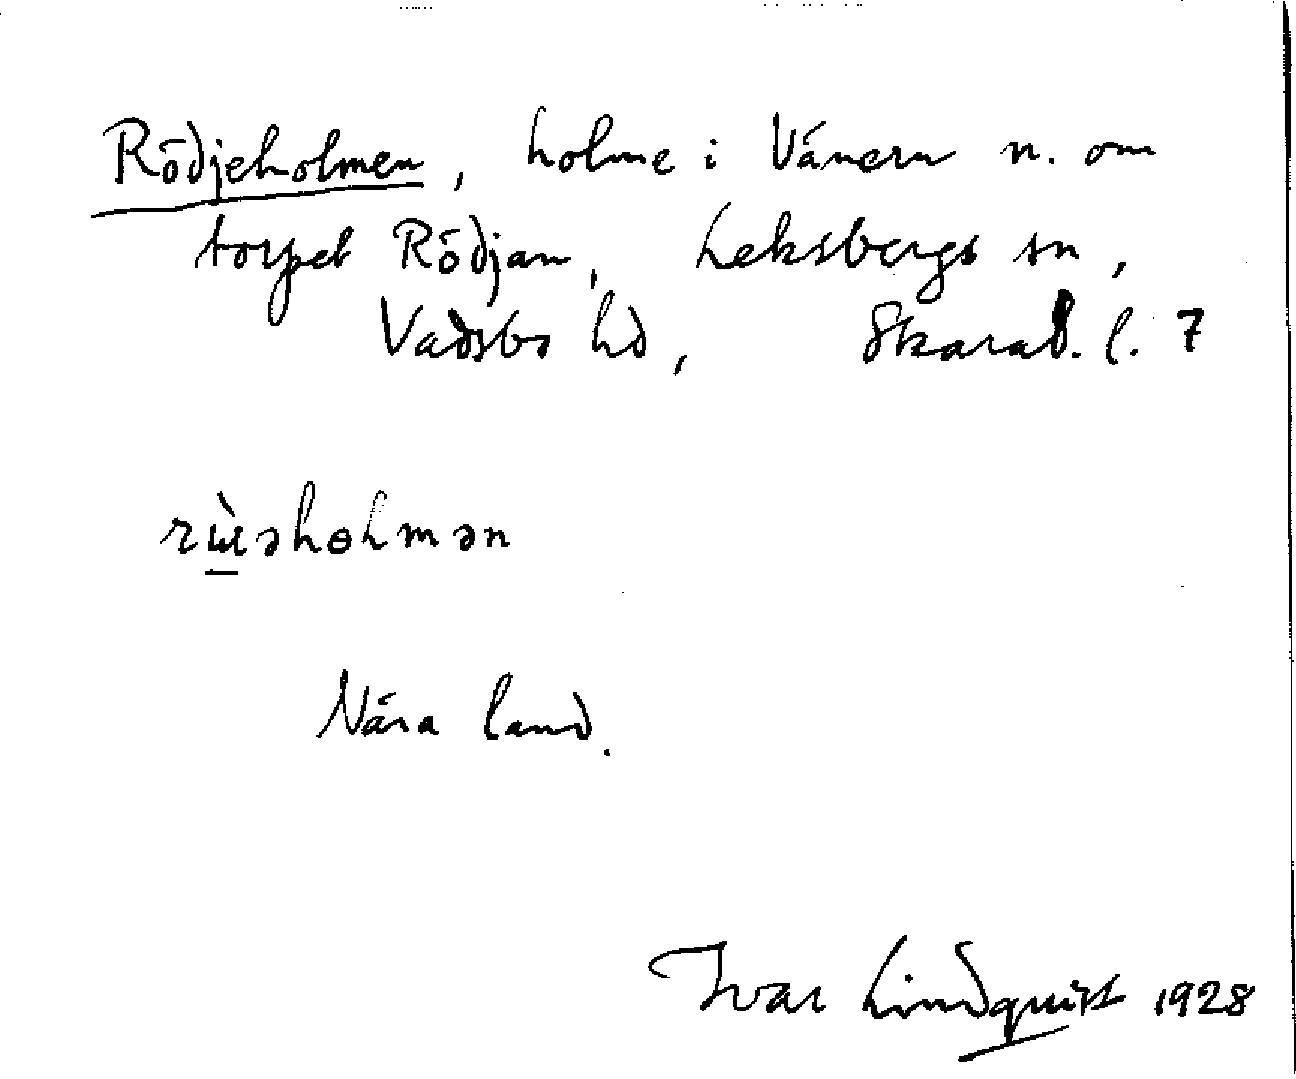 Rödjeholmen, holme i Vänern n. om
torpet Rödjan, Leksbergs sn,
Vadsbo hd, Skarab. l. 7
Nära land.
Ivar Lindquist 1928